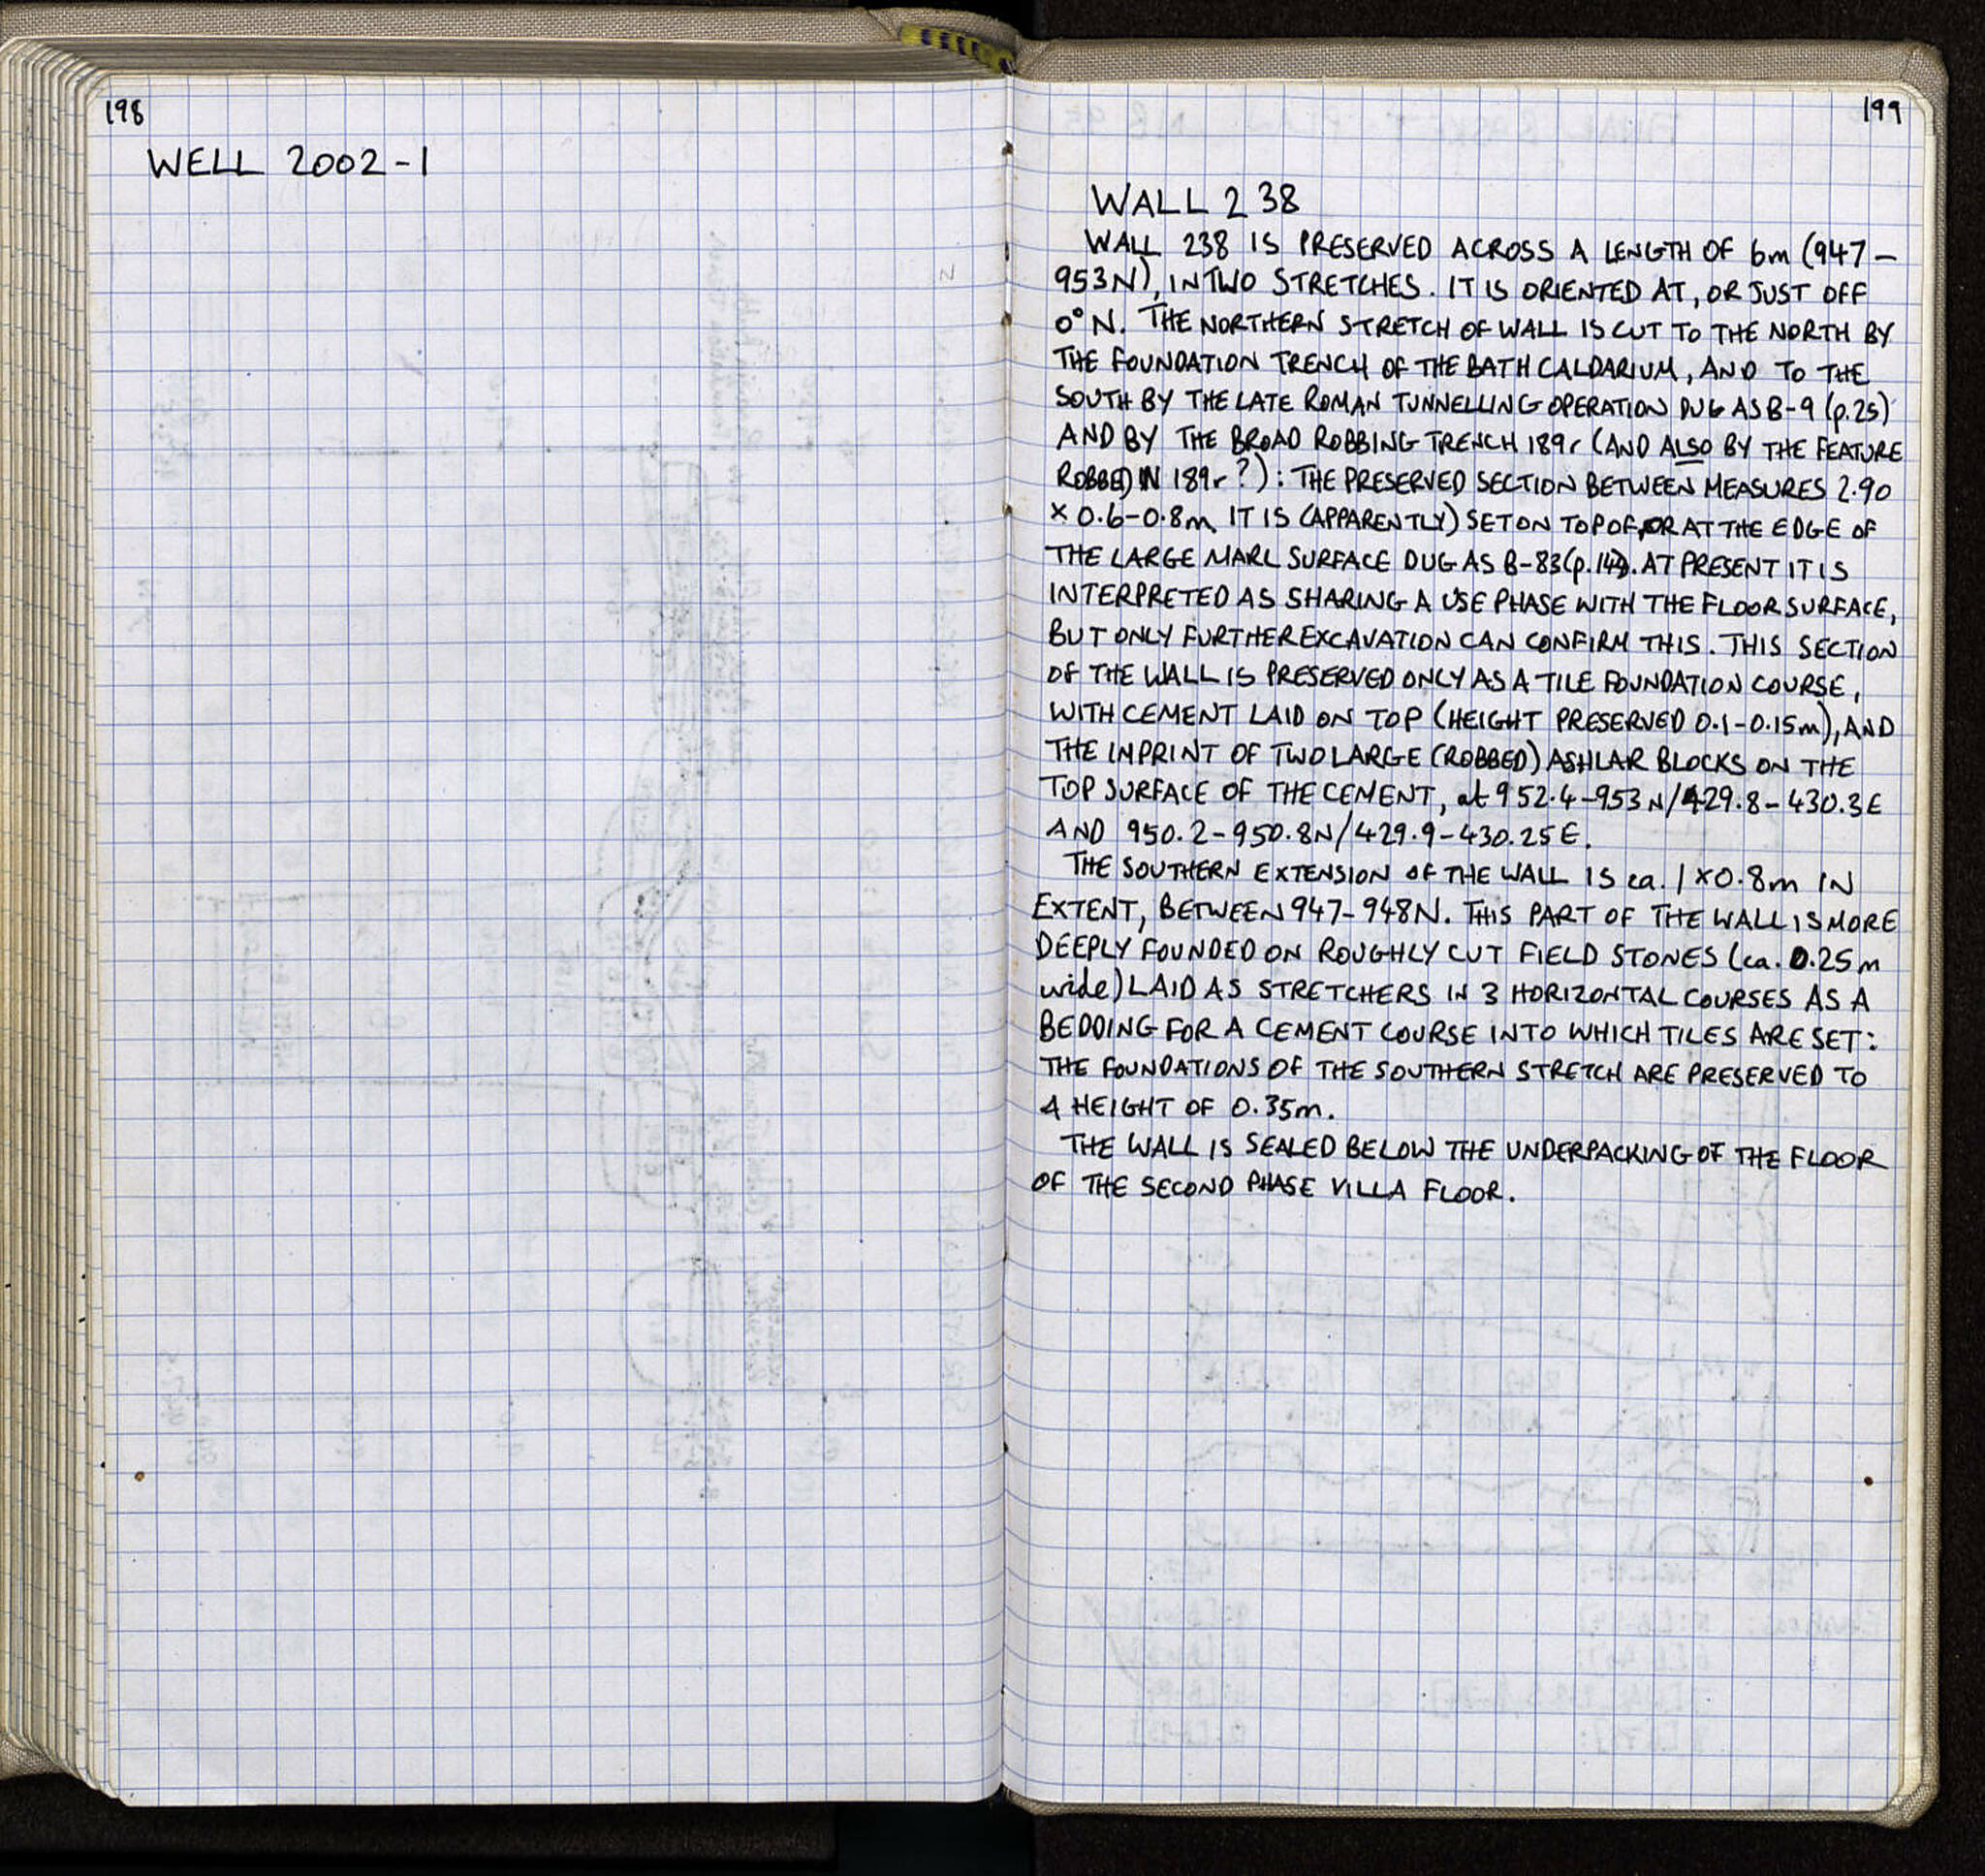 198
WELL 2002-1
199
WALL 238
WALL 238 IS PRESERVED ACROSS A LENGTH OF 6m (947-
953N), IN TWO STRETCHES. IT IS ORIENTED AT, OR JUST OFF
0° N. THE NORTHERN STRETCH OF WALL IS CUT TO THE NORTH BY
THE FOUNDATION TRENCH OF THE BATH CALDARIUM, AND TO THE
SOUTH BY THE LATE ROMAN TUNNELLING OPERATION DUG AS B-9 (p.25)
AND BY THE BROAD ROBBING TRENCH 189r (AND ALSO BY THE FEATURE
ROBBED IN 189r?): THE PRESERVED SECTION BETWEEN MEASURES 2.90
x 0.6-0.8m. IT IS (APPARENTLY) SET ON TOP OF, OR AT THE EDGE OF
THE LARGE MARL SURFACE DUG AS B-83 (p. ). AT PRESENT IT IS
INTERPRETED AS SHARING A USE PHASE WITH THE FLOOR SURFACE,
BUT ONLY FURTHER EXCAVATION CAN CONFIRM THIS. THIS SECTION
OF THE WALL IS PRESERVED ONLY AS A TILE FOUNDATION COURSE,
WITH CEMENT LAID ON TOP (HEIGHT PRESERVED 0.1-0.15m), AND
THE IMPRINT OF TWO LARGE (ROBBED) ASHLAR BLOCKS ON THE
TOP SURFACE OF THE CEMENT, at 952.4-953N/429.8-430.3E
AND 950.2-950.8N/429.9-430.25E.
THE SOUTHERN EXTENSION OF THE WALL IS ca. 1x0.8m IN
EXTENT, BETWEEN 947-948N. THIS PART OF THE WALL IS MORE
DEEPLY FOUNDED ON ROUGHLY CUT FIELD STONES (ca. 0.25m
wide) LAID AS STRETCHERS IN 3 HORIZONTAL COURSES AS A
BEDDING FOR A CEMENT COURSE INTO WHICH TILES ARE SET:
THE FOUNDATIONS OF THE SOUTHERN STRETCH ARE PRESERVED TO
A HEIGHT OF 0.35m.
THE WALL IS SEALED BELOW THE UNDERPACKING OF THE FLOOR
OF THE SECOND PHASE VILLA FLOOR.